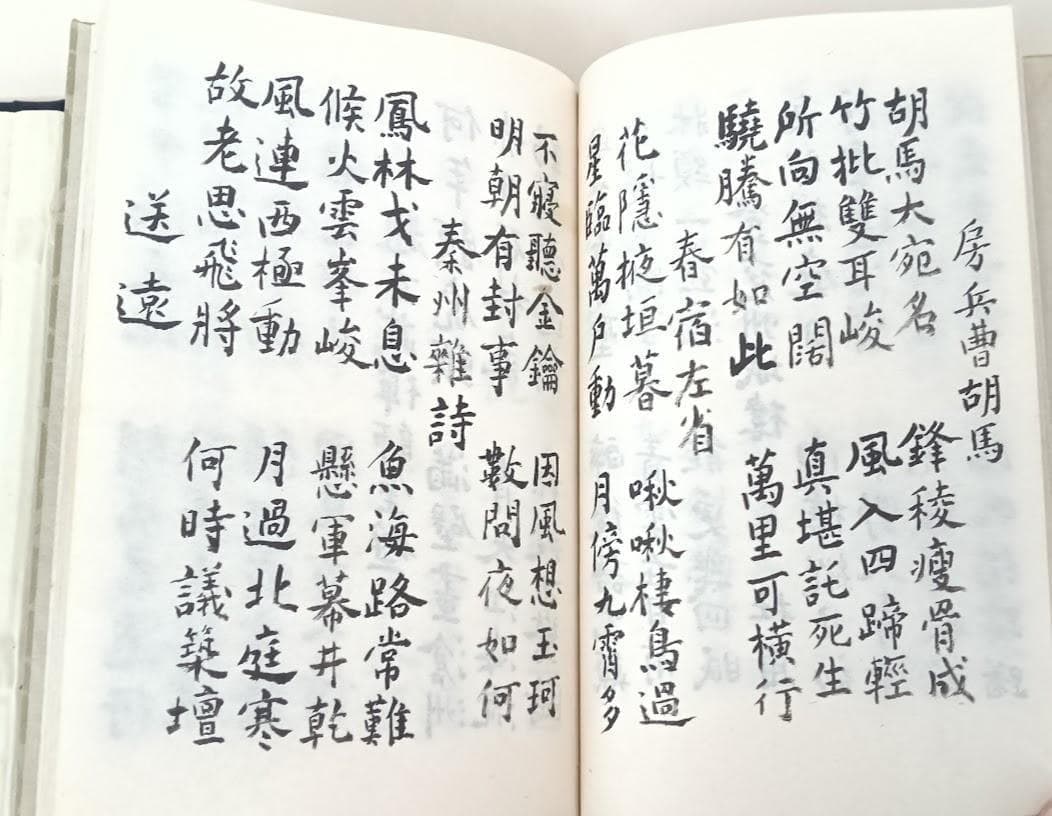 房兵曹胡馬
胡馬大宛名 鋒稜瘦骨成
竹批雙耳峻 風入四蹄輕
所向無空闊 真堪託死生
驍騰有如此 萬里可橫行
春宿左省
花隱掖垣暮 啾啾棲鳥過
星臨萬戶動 月傍九霄多
不寢聽金鑰 因風想玉珂
明朝有封事 數問夜如何
秦州雜詩
鳳林戈未息 魚海路常難
候火雲峯峻 懸軍幕井乾
風連西極動 月過北庭寒
故老思飛將 何時議築壇
送遠